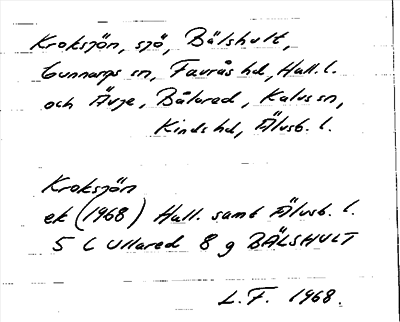 Kroksjön, sjö, Bälshult,
Gunnarps sn, Faurås hd, Hall. l.
och Älvje, Bålared, Kalvs sn,
Kinds hd, Älvsb. l.
Kroksjön
ek (1968) Hall. samt Älvsb. l.
5 C Ullared 8 g BÄLSHULT
L. F. 1968.